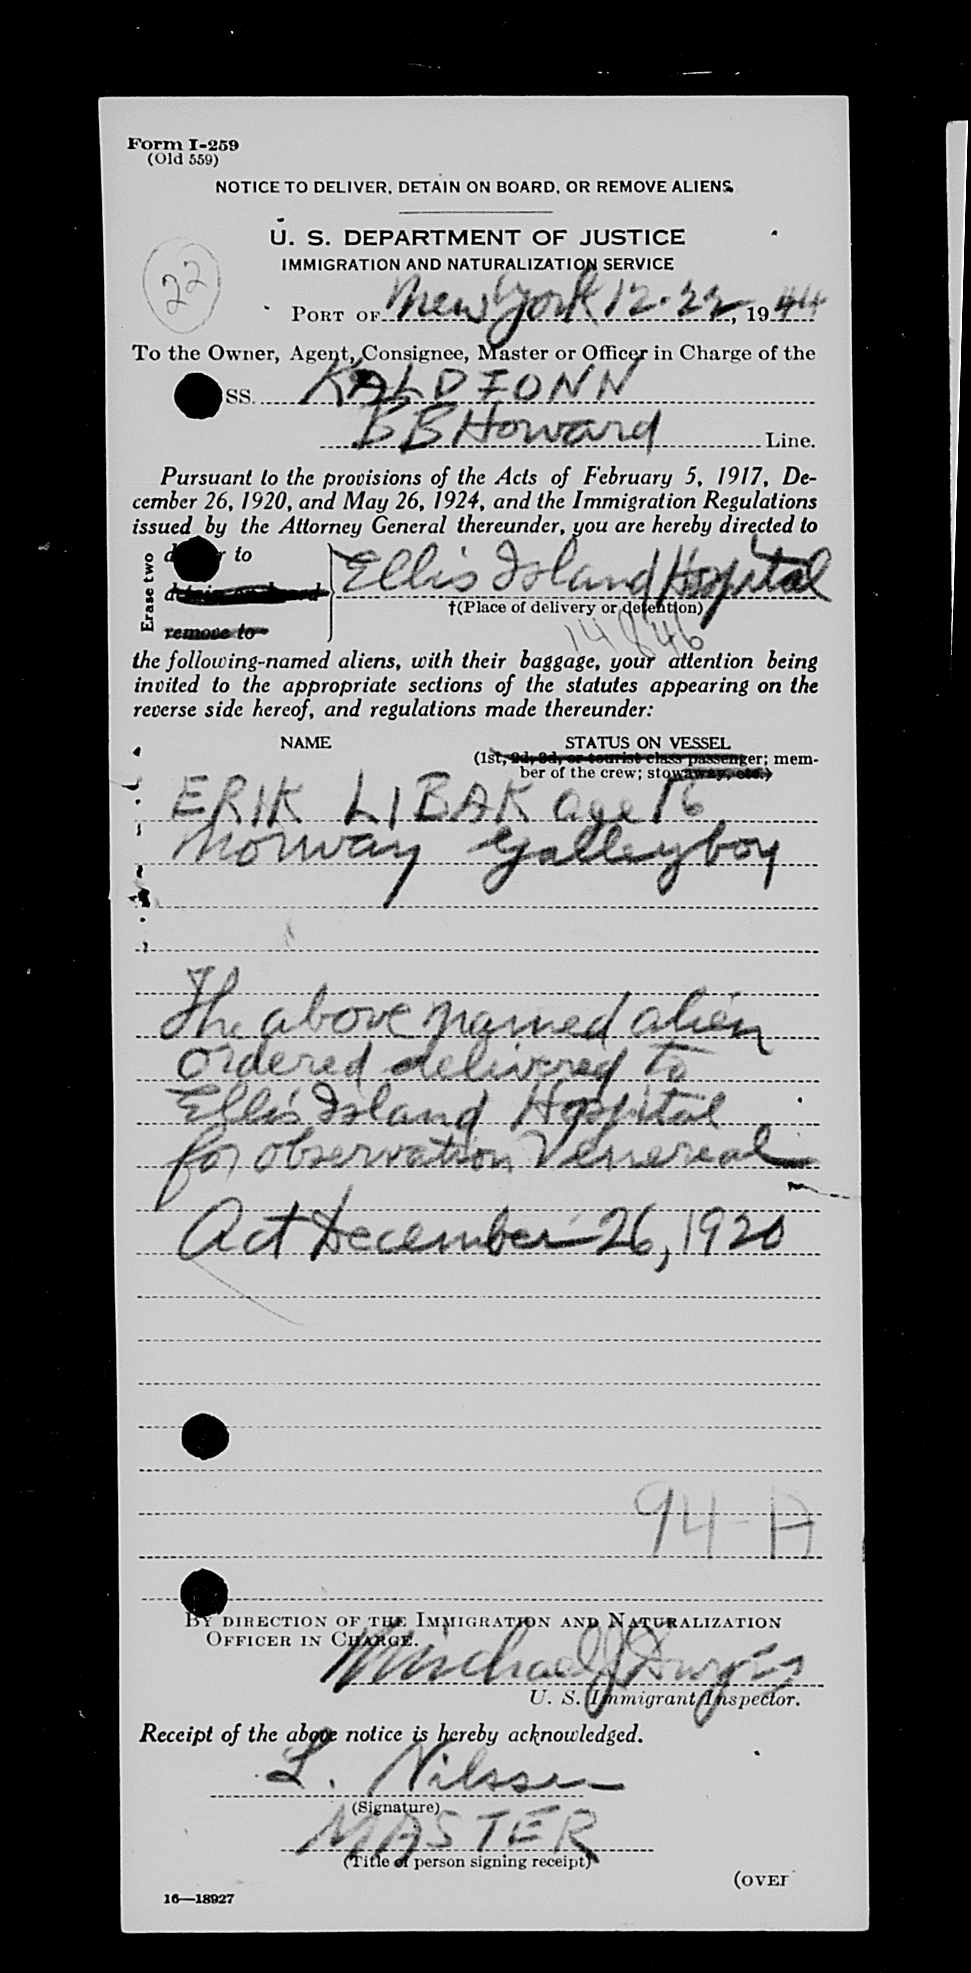 Form I-259
(Old 559)
NOTICE TO DELIVER, DETAIN ON BOARD, OR REMOVE ALIENS
U. S. DEPARTMENT OF JUSTICE
IMMIGRATION AND NATURALIZATION SERVICE
22
PORT OF New York 12-22, 1944
To the Owner, Agent, Consignee, Master or Officer in Charge of the
SS. KALDFONN
BB Howard Line.
Pursuant to the provisions of the Acts of February 5, 1917, De-
cember 26, 1920, and May 26, 1924, and the Immigration Regulations
issued by the Attorney General thereunder, you are hereby directed to
Erase two
to
Ellis Island Hospital
†(Place of delivery or detention)
remove to
14846
the following-named aliens, with their baggage, your attention being
invited to the appropriate sections of the statutes appearing on the
reverse side hereof, and regulations made thereunder:
NAME STATUS ON VESSEL
(1st, 2d, 3d, or tourist class passenger; mem-
ber of the crew; stowaway, etc.)
ERIK LIBAK age 16
Norway Galleyboy
The above named alien
ordered delivered to
Ellis Island Hospital
for observation Venereal
Act December 26, 1920
94-A
BY DIRECTION OF THE IMMIGRATION AND NATURALIZATION
OFFICER IN CHARGE.
Michael J
U. S. Immigrant Inspector.
Receipt of the above notice is hereby acknowledged.
L. Nilssen
(Signature)
MASTER
(Title of person signing receipt)
(OVER
16—18927